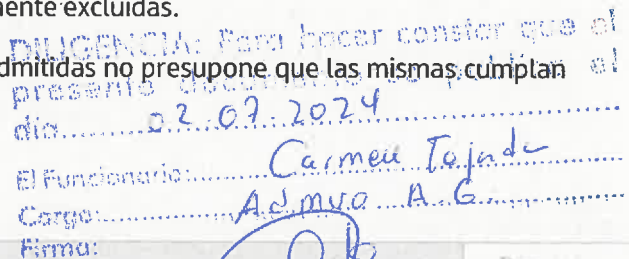 mente excluidas.
DILIGENCIA: Para hacer constar que el
admitidas no presupone que las mismas cumplan
presente documento se publica el
día 02.07.2024
El Funcionario: Carmen
Cargo: Admva A.G
Firma: